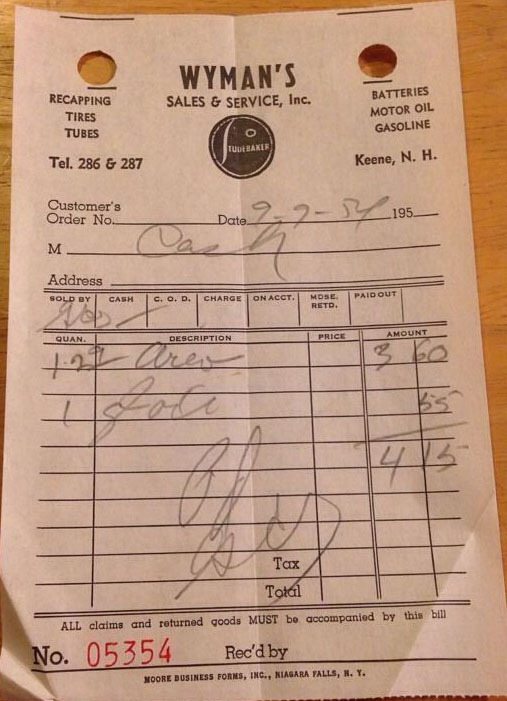 WYMAN'S
SALES & SERVICE, Inc.
RECAPPING
TIRES
TUBES
Tel. 286 & 287
STUDEBAKER
BATTERIES
MOTOR OIL
GASOLINE
Keene, N. H.
Customer's
Order No. Date 9-9-54 195
M Cash
Address
SOLD BY CASH C. O. D. CHARGE ON ACCT. MDSE. RETD. PAID OUT
QUAN. DESCRIPTION PRICE AMOUNT
3 60
1 55
4 15
Tax
Total
ALL claims and returned goods MUST be accompanied by this bill
No. 05354 Rec'd by
MOORE BUSINESS FORMS, INC., NIAGARA FALLS, N. Y.